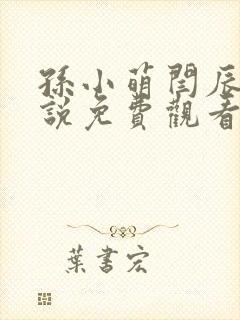 孫小萌閆辰
說免費觀看
葉書宏